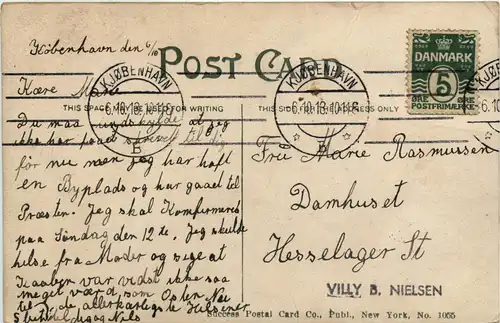 København den 6/10
POST CARD
DANMARK
5
ØRE ØRE
POSTFRIMÆRKE
KJØBENHAVN
6.10.13.10-11F.
B
KJØBENHAVN
6.10.13.10-11F.
B
THIS SPACE MAY BE USED FOR WRITING
THIS SPACE FOR ADDRESS ONLY
Kære Marie
Du maa undskylde at jeg
ikke har faaet skrevet til dig
før nu men jeg har haft
en Byplads og har gaaet til
Præsten. Jeg skal Komfirmeres
paa Søndag den 12te. Jeg skulde
hilse fra Moder og sige at
var vidst ikke saa
meget værd som
til de allerkærligste Hilsner
Nils
Frk Marie Rasmussen
Damhuset
Hesselager St
VILLY B. NIELSEN
Success Postal Card Co., Publ., New York, No. 1055